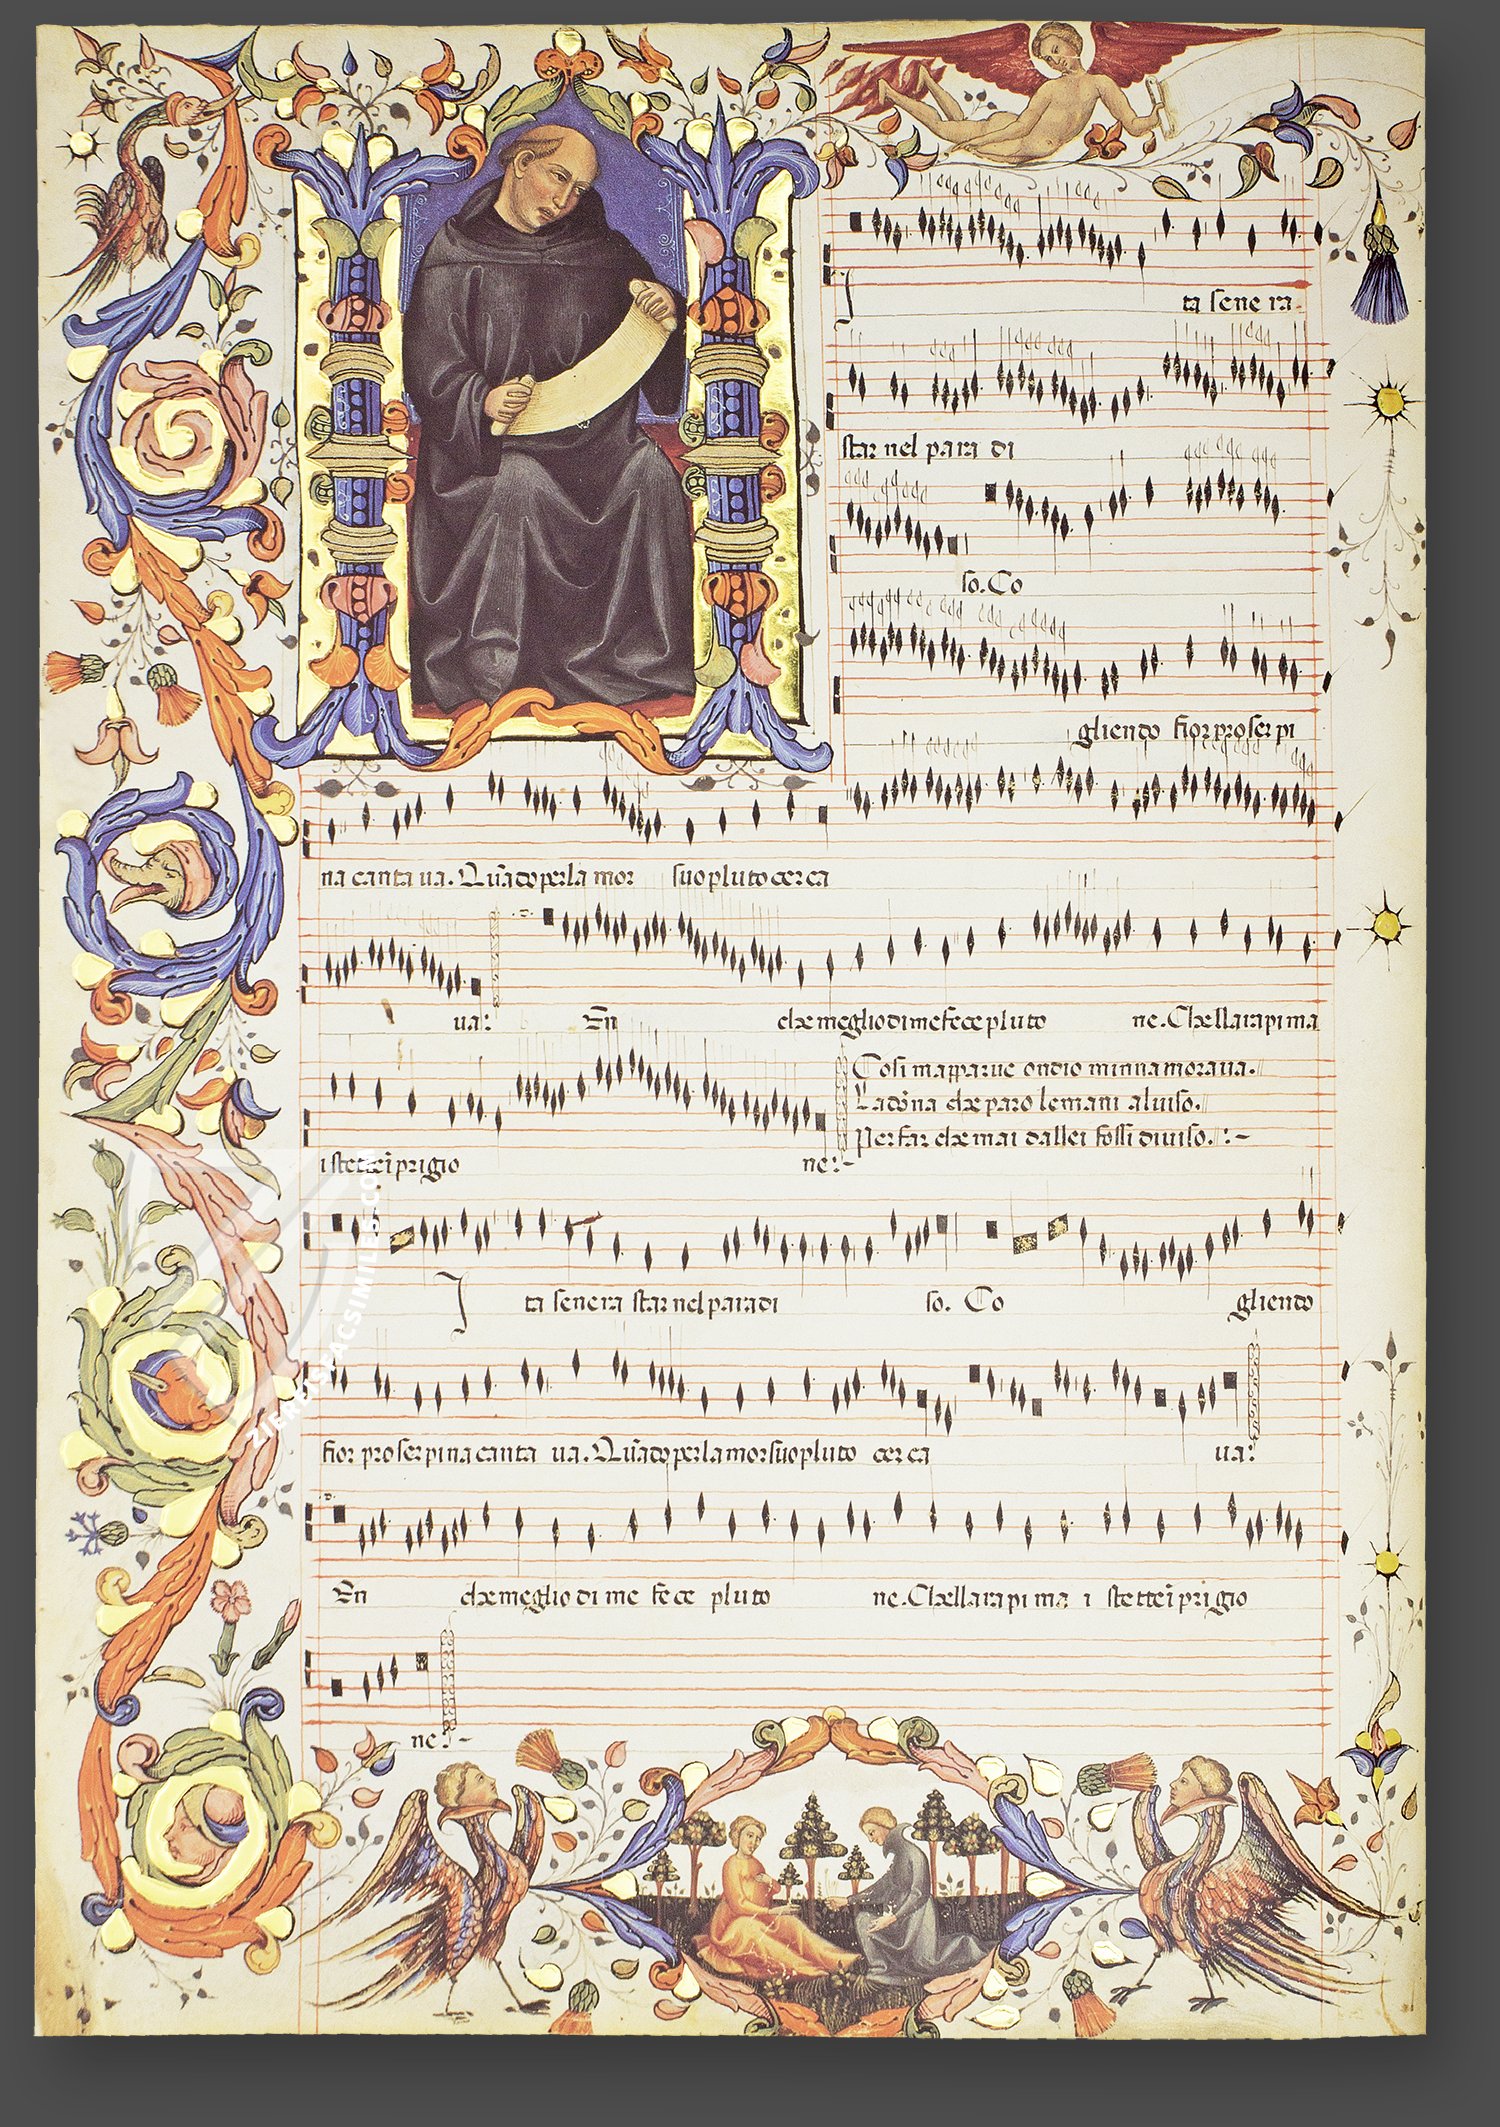 I ta se ne ra
star nel para di
so. Co
gliendo fior pro ser pi
na canta ua. Qu̅ado per la mor suo pluto cer ca
ua: En che meglio di me fece pluto ne. Chella rapi ma
i stettei̅ prigio ne:-
Cosi mapparue ondio minnamoraua.
La do̅na che paro lemani aluiso.
Per far che mai dallei fossi diuiso. :-
I ta se ne ra star nel para di so. Co gliendo
fior pro ser pi na canta ua. Qu̅ado per la mor suo pluto cer ca ua:
En che meglio di me fe ce pluto ne. Chella rapi ma i stettei̅ prigio
ne:-
ZIEREIS FACSIMILES.COM